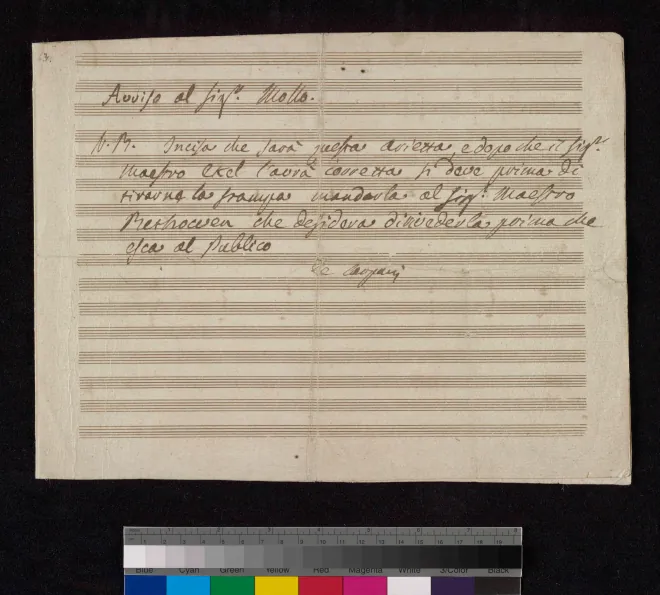 Avviso al Sigr. Mollo.
N. B. Incisa che sarà questa arietta, e dopo che il Sigr.
Maestro l'avrà corretta si deve prima di
tirarne la stampa mandarla al Sigr. Maestro
Bethoowen che desidera di rivederla prima che
esca al Publico
De Carpani
1 2 3 4 5 6 7 8
1 2 3 4 5 6 7 8 9 10 11 12 13 14 15 16 17 18 19
Blue Cyan Green Yellow Red Magenta White 3/Color Black